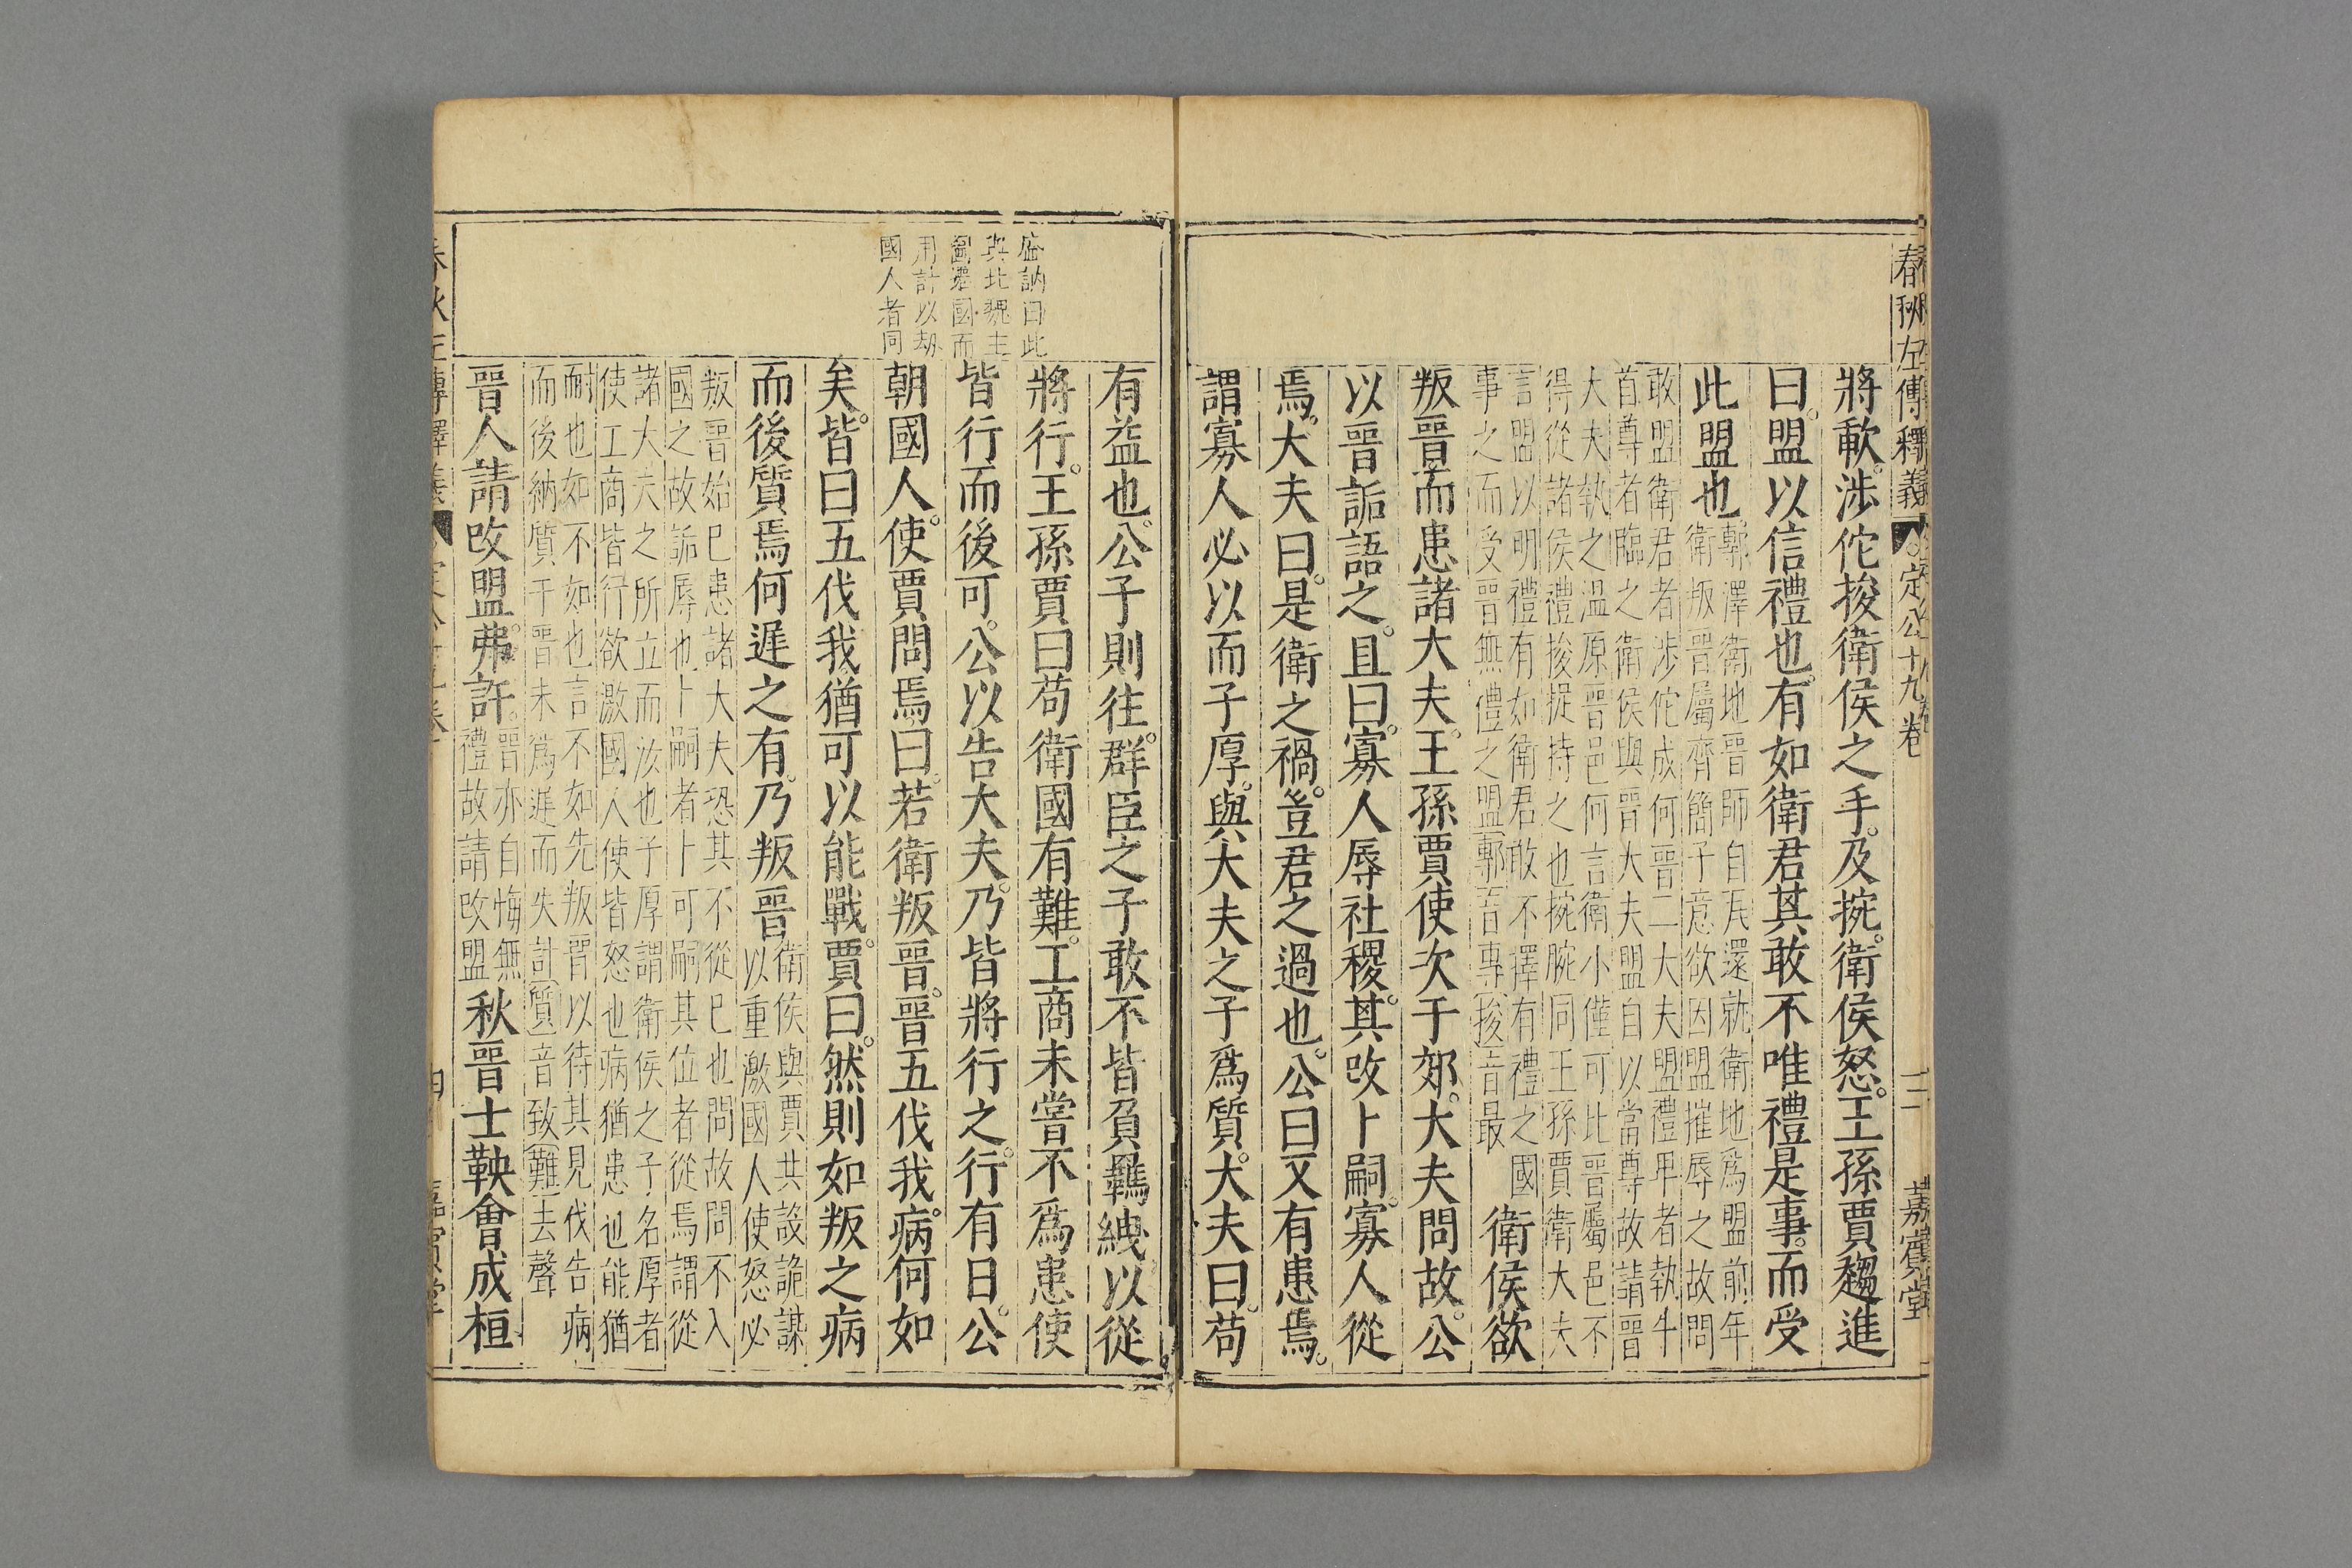 春秋左傳釋義 定公十九卷 三 嘉賓堂
將歃。涉佗捘衛侯之手。及捥。衛侯怒。王孫賈趨進
曰。盟以信禮也。有如衛君。其敢不唯禮是事。而受
此盟也
鄟澤衛地晉師自瓦還就衛地爲盟前年
衛叛晉屬齊簡子意欲因盟摧辱之故問
敢盟衛君者涉佗成何晉二大夫盟禮卑者執牛
首尊者臨之衛侯與晉大夫盟自以當尊故請晉
大夫執之溫原晉邑何言衛小僅可比晉屬邑不
得從諸侯禮捘捉持之也捥腕同王孫賈衛大夫
言盟以明禮有如衛君敢不擇有禮之國
事之而受晉無禮之盟鄟音專捘音最
衛侯欲
叛晉而患諸大夫。王孫賈使次于郊。大夫問故。公
以晉詬語之。且曰。寡人辱社稷。其改卜嗣。寡人從
焉。大夫曰。是衛之禍。豈君之過也。公曰又有患焉。
謂寡人必以而子厚。與大夫之子爲質。大夫曰。苟
有益也。公子則往。群臣之子敢不皆負羈絏以從
將行。王孫賈曰苟衛國有難。工商未嘗不爲患使
皆行而後可。公以告大夫。乃皆將行之。行有日。公
朝國人。使賈問焉曰。若衛叛晉。晉五伐我。病何如
矣。皆曰五伐我猶可以能戰。賈曰。然則如叛之病
而後質焉何遲之有。乃叛晉
衛侯與賈共設詭謀
以重激國人使怒必
叛晉始巳患諸大夫恐其不從巳也問故問不入
國之故詬辱也卜嗣者卜可嗣其位者從焉謂從
諸大夫之所立而汝也子厚謂衛侯之子名厚者
使工商皆行欲激國人使皆怒也病猶患也能猶
耐也如不如也言不如先叛晉以待其見伐告病
而後納質于晉未爲遲而失計質音致難去聲
晉人請改盟。弗許。
晉亦自悔無
禮故請改盟
秋晉士鞅會成桓
與北魏主
用計以劫
國人者同